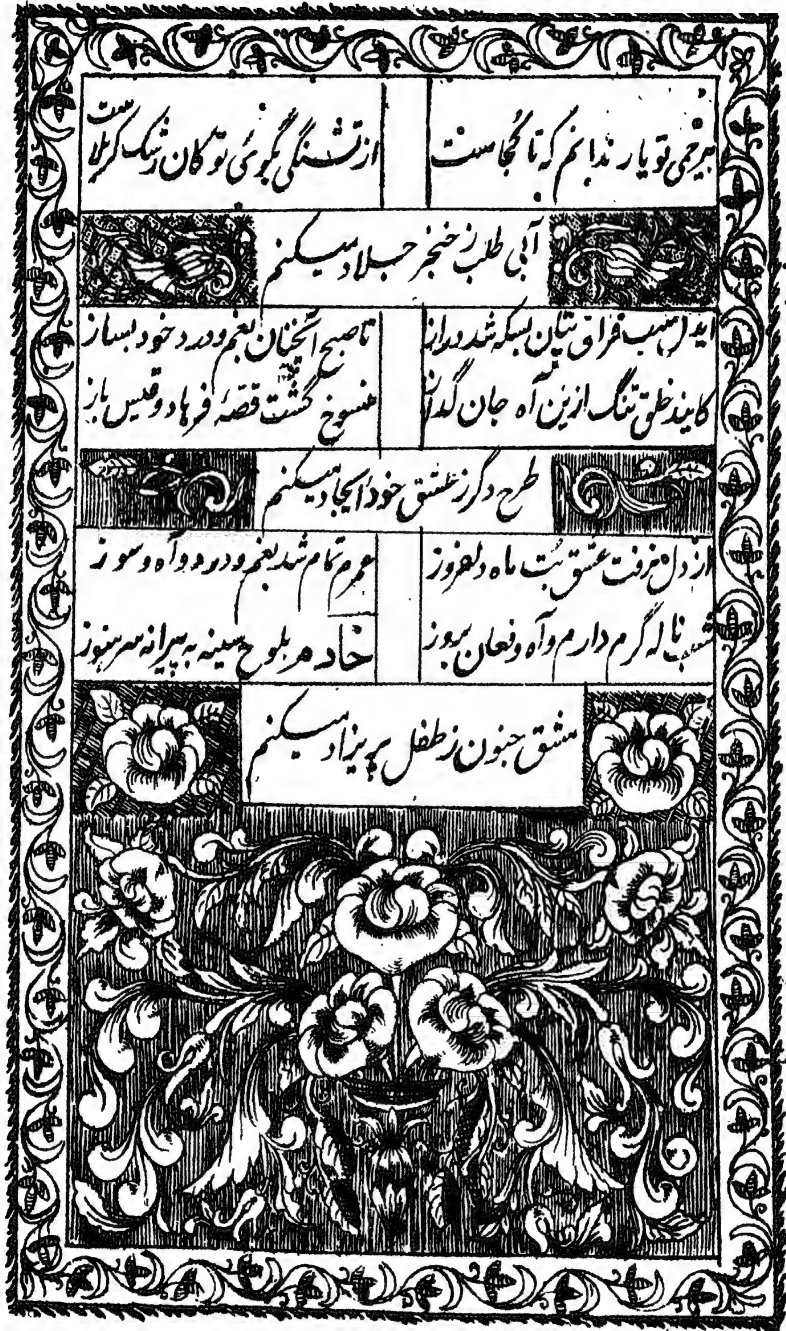 بیرحمی تو یار ندانم که تا کجاست
از تشنگی بگوی تو کان رشک کربلاست
آبی طلب ز خنجر جلاد میکنم
ایدل شب فراق بتان بسکه شد دراز
تا صبح آنچنان بغم و درد خود بساز
کایند خلق تنگ ازین آه جان گداز
منسوخ گشت قصهٔ فرهاد و قیس باز
طرح دگر ز عشق خود ایجاد میکنم
از دل نرفت عشق بت ماه دلفروز
عمرم تمام شد بغم و درد و آه و سوز
شب ناله گرم دارم و آه و فغان بروز
خادم بلوح سینه به پیرانه سر هنوز
مشق جنون ز طفل پریزاد میکنم